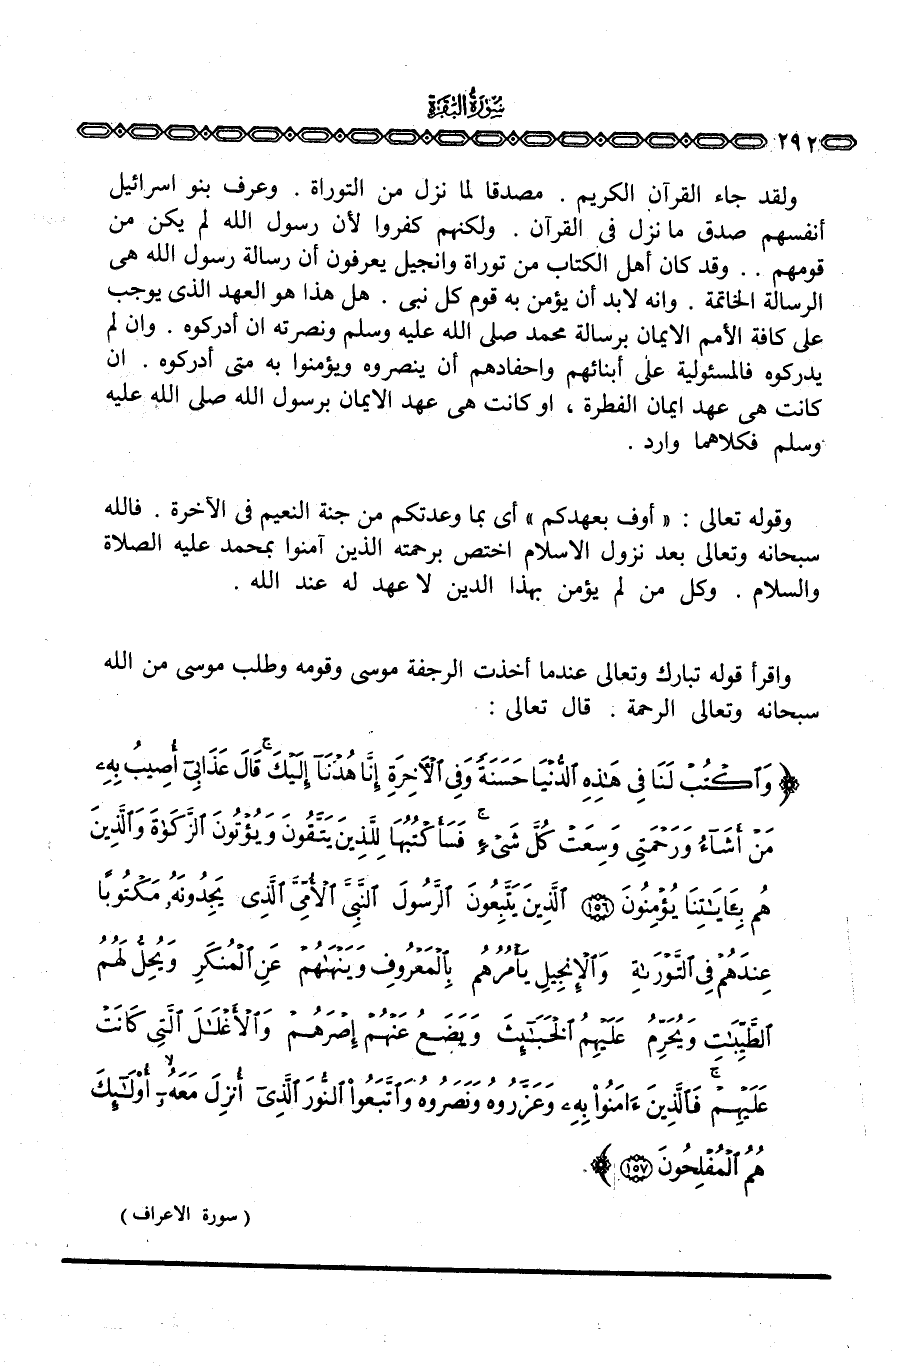 سُورَةُ البَقَرَة
٢٩٢
ولقد جاء القرآن الكريم . مصدقا لما نزل من التوراة . وعرف بنو اسرائيل
أنفسهم صدق ما نزل فى القرآن . ولكنهم كفروا لأن رسول الله لم يكن من
قومهم . . وقد كان أهل الكتاب من توراة وانجيل يعرفون أن رسالة رسول الله هى
الرسالة الخاتمة . وانه لابد أن يؤمن به قوم كل نبى . هل هذا هو العهد الذى يوجب
على كافة الأمم الايمان برسالة محمد صلى الله عليه وسلم ونصرته ان أدركوه . وان لم
يدركوه فالمسئولية على أبنائهم واحفادهم أن ينصروه ويؤمنوا به متى أدركوه . ان
كانت هى عهد ايمان الفطرة ، او كانت هى عهد الايمان برسول الله صلى الله عليه
وسلم فكلاهما وارد .
وقوله تعالى : « أوف بعهدكم » أى بما وعدتكم من جنة النعيم فى الآخرة . فالله
سبحانه وتعالى بعد نزول الاسلام اختص برحمته الذين آمنوا بمحمد عليه الصلاة
والسلام . وكل من لم يؤمن بهذا الدين لا عهد له عند الله .
واقرأ قوله تبارك وتعالى عندما أخذت الرجفة موسى وقومه وطلب موسى من الله
سبحانه وتعالى الرحمة . قال تعالى :
﴿ وَٱكْتُبْ لَنَا فِى هَٰذِهِ ٱلدُّنْيَا حَسَنَةً وَفِى ٱلْآخِرَةِ إِنَّا هُدْنَآ إِلَيْكَ ۚ قَالَ عَذَابِىٓ أُصِيبُ بِهِۦ
مَنْ أَشَآءُ وَرَحْمَتِى وَسِعَتْ كُلَّ شَىْءٍ ۚ فَسَأَكْتُبُهَا لِلَّذِينَ يَتَّقُونَ وَيُؤْتُونَ ٱلزَّكَوٰةَ وَٱلَّذِينَ
هُم بِـَٔايَٰتِنَا يُؤْمِنُونَ ١٥٦ ٱلَّذِينَ يَتَّبِعُونَ ٱلرَّسُولَ ٱلنَّبِىَّ ٱلْأُمِّىَّ ٱلَّذِى يَجِدُونَهُۥ مَكْتُوبًا
عِندَهُمْ فِى ٱلتَّوْرَىٰةِ وَٱلْإِنجِيلِ يَأْمُرُهُم بِٱلْمَعْرُوفِ وَيَنْهَىٰهُمْ عَنِ ٱلْمُنكَرِ وَيُحِلُّ لَهُمُ
ٱلطَّيِّبَٰتِ وَيُحَرِّمُ عَلَيْهِمُ ٱلْخَبَٰٓئِثَ وَيَضَعُ عَنْهُمْ إِصْرَهُمْ وَٱلْأَغْلَٰلَ ٱلَّتِى كَانَتْ
عَلَيْهِمْ ۚ فَٱلَّذِينَ ءَامَنُوا۟ بِهِۦ وَعَزَّرُوهُ وَنَصَرُوهُ وَٱتَّبَعُوا۟ ٱلنُّورَ ٱلَّذِىٓ أُنزِلَ مَعَهُۥٓ ۙ أُو۟لَٰٓئِكَ
هُمُ ٱلْمُفْلِحُونَ ١٥٧ ﴾
( سورة الاعراف )